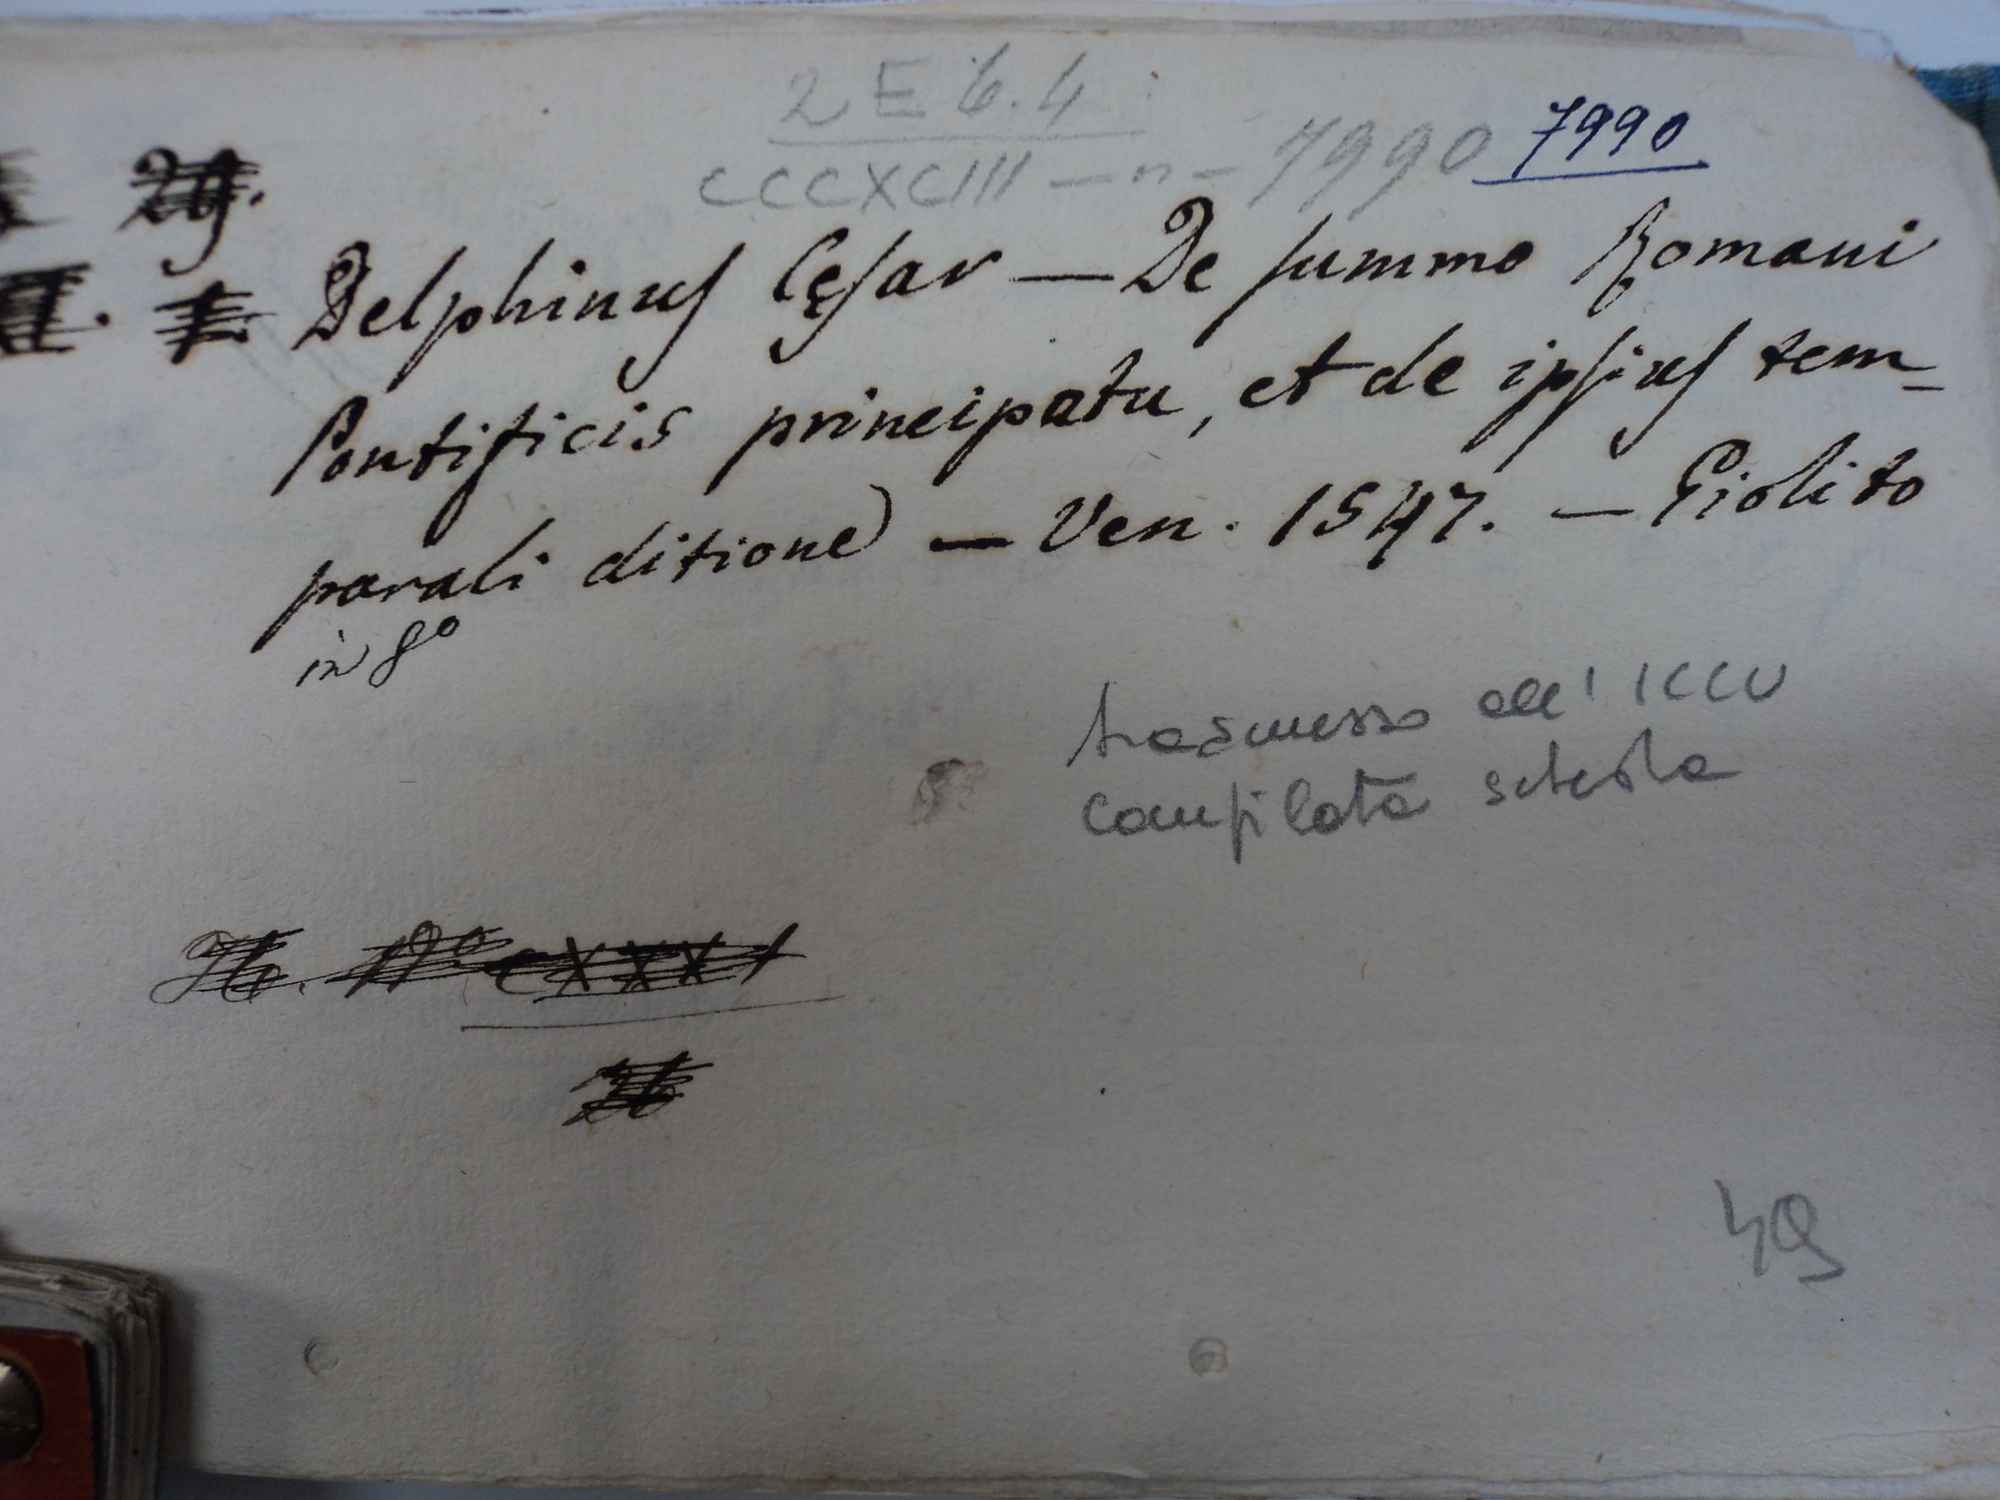 2 E 6.4
CCCXCIII – n – 7990 7990
Delphinus Cęsar — De summo Romani
Pontificis principatu, et de ipsius tem-
porali ditione — Ven. 1547. — Giolito
in 8º
trasmesso all' ICCU
compilata scheda